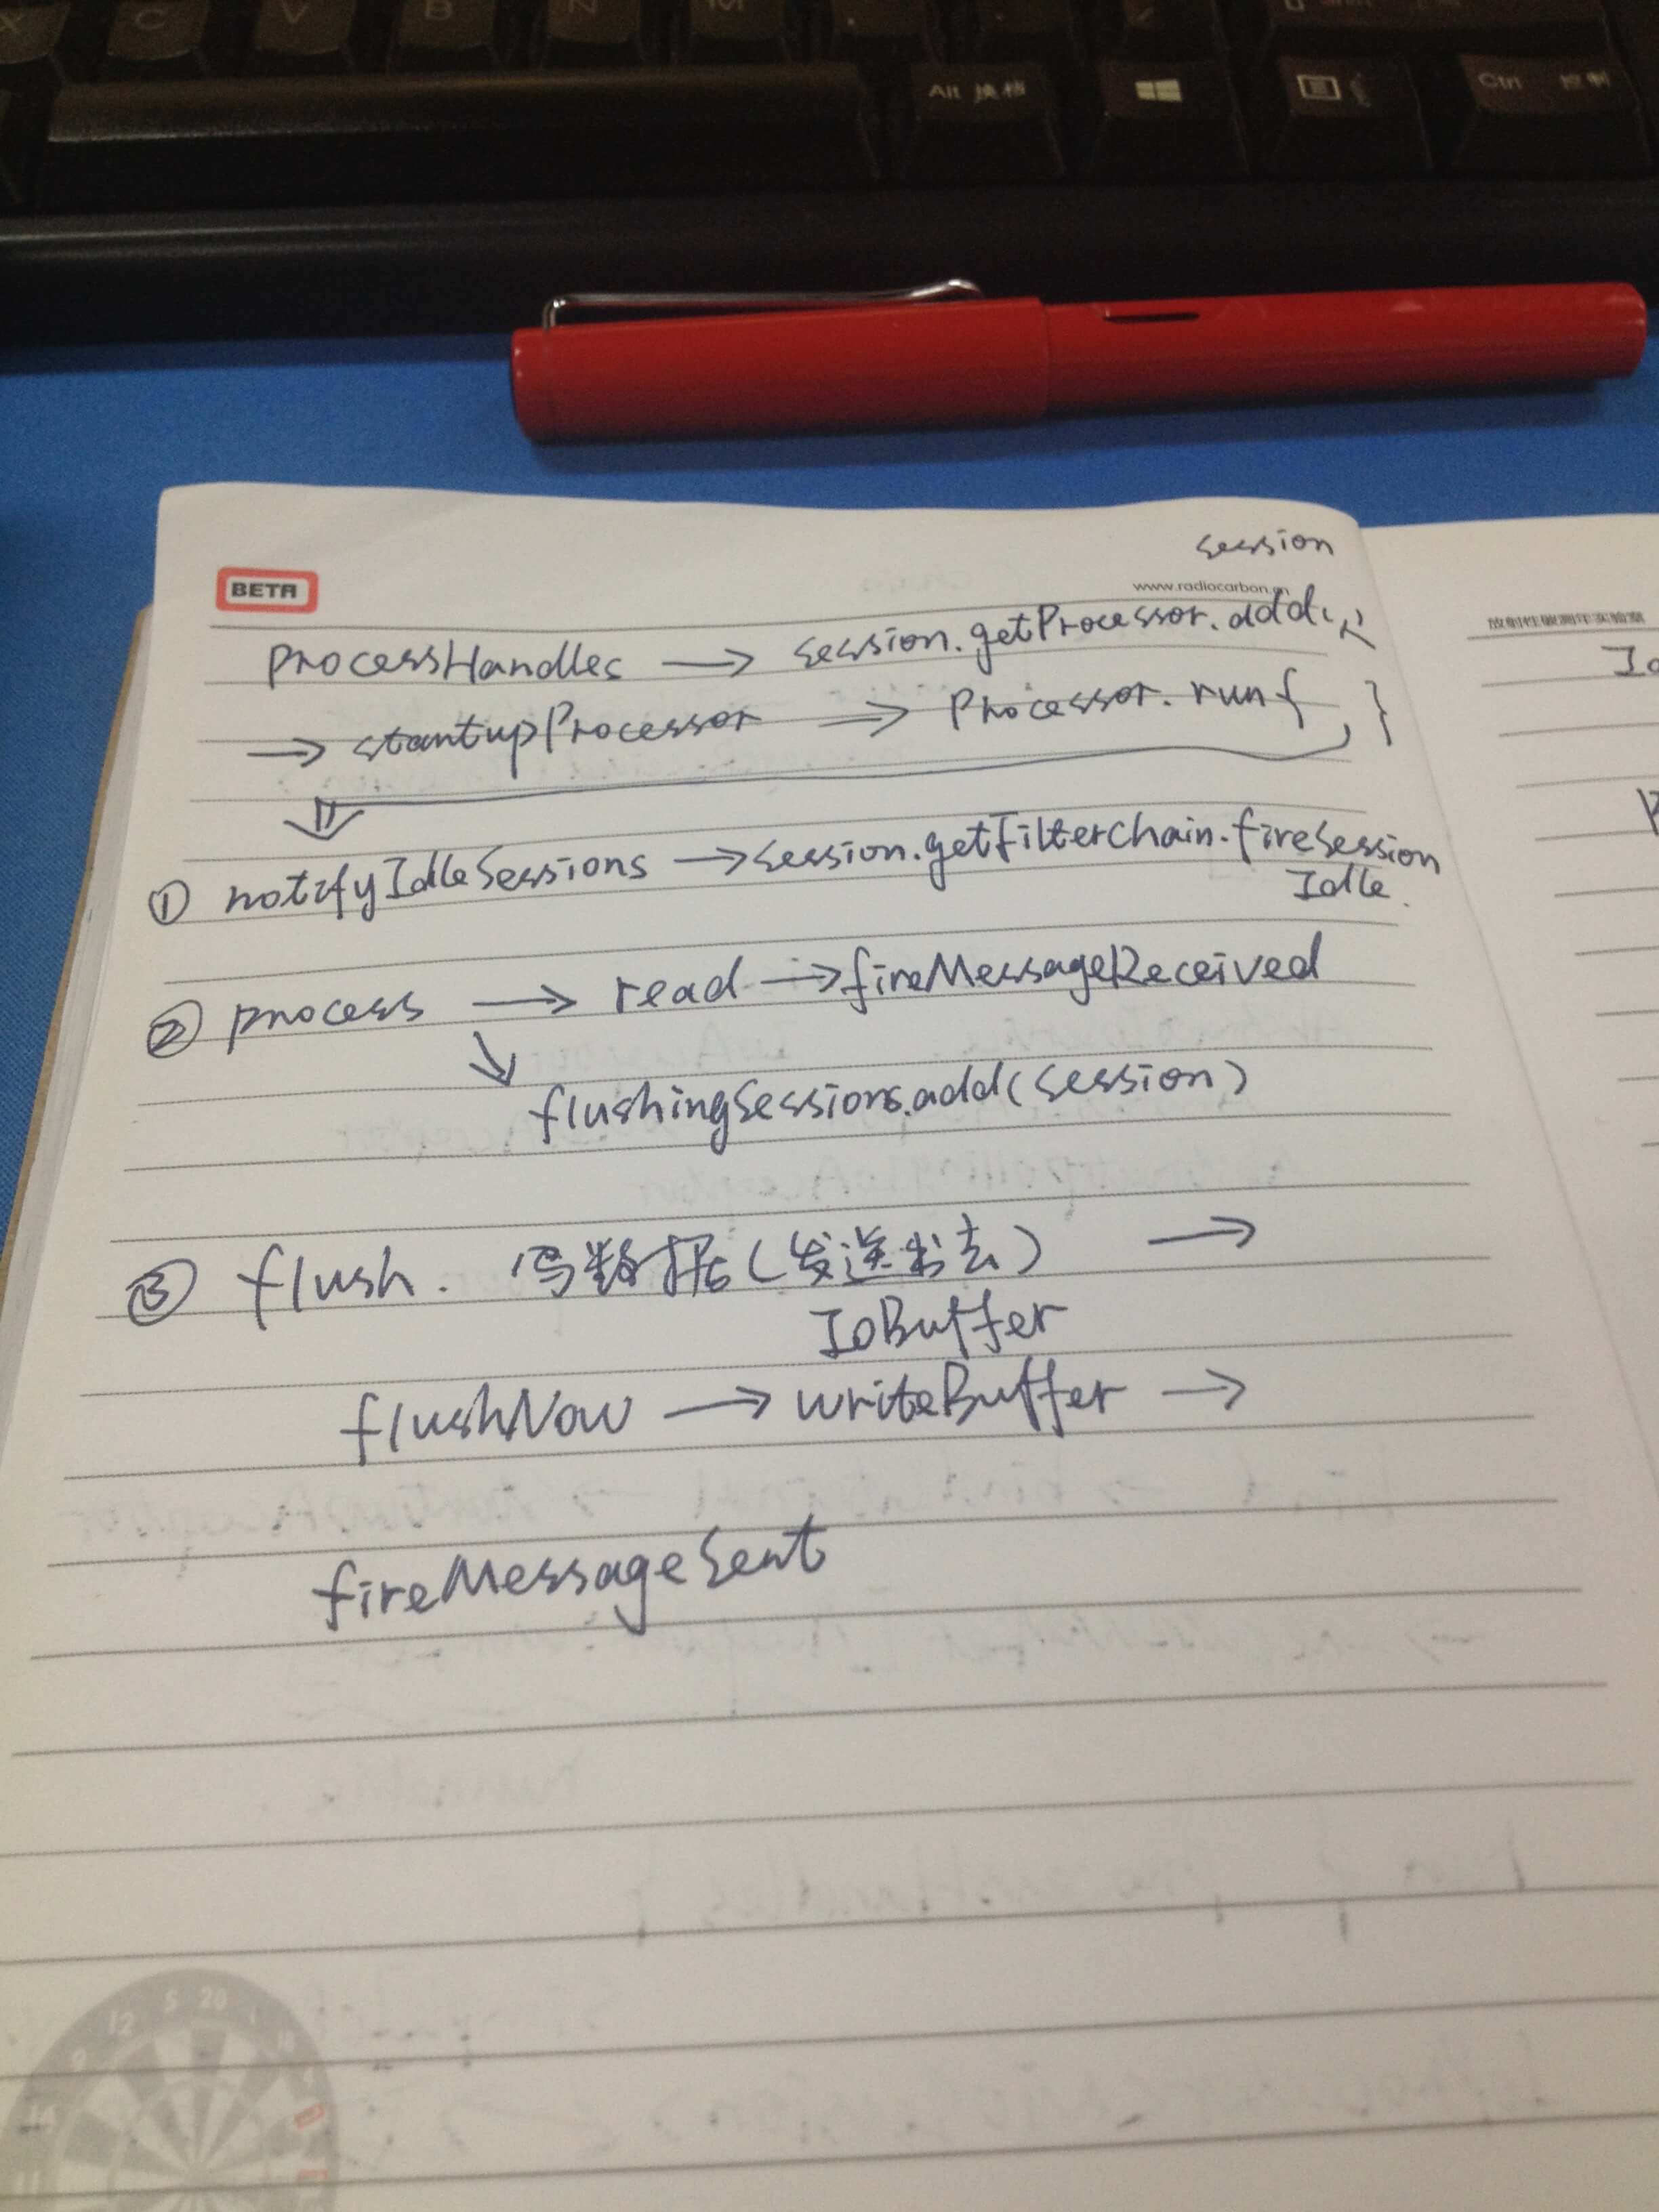 X C V B N M
Alt 换档
Ctrl 控制
session
BETA
www.radiocarbon.cn
processHandles → session.getProcessor.add(
→ startupProcessor ⇒ Processor.run{ }
① notifyIdleSessions → session.getFilterChain.fireSession
Idle.
② process → read → fireMessageReceived
↘
flushingSessions.add(session)
③ flush. 写数据(发送出去) →
IoBuffer
flushNow → writeBuffer →
fireMessageSent
12 5 20 1
9
14
11